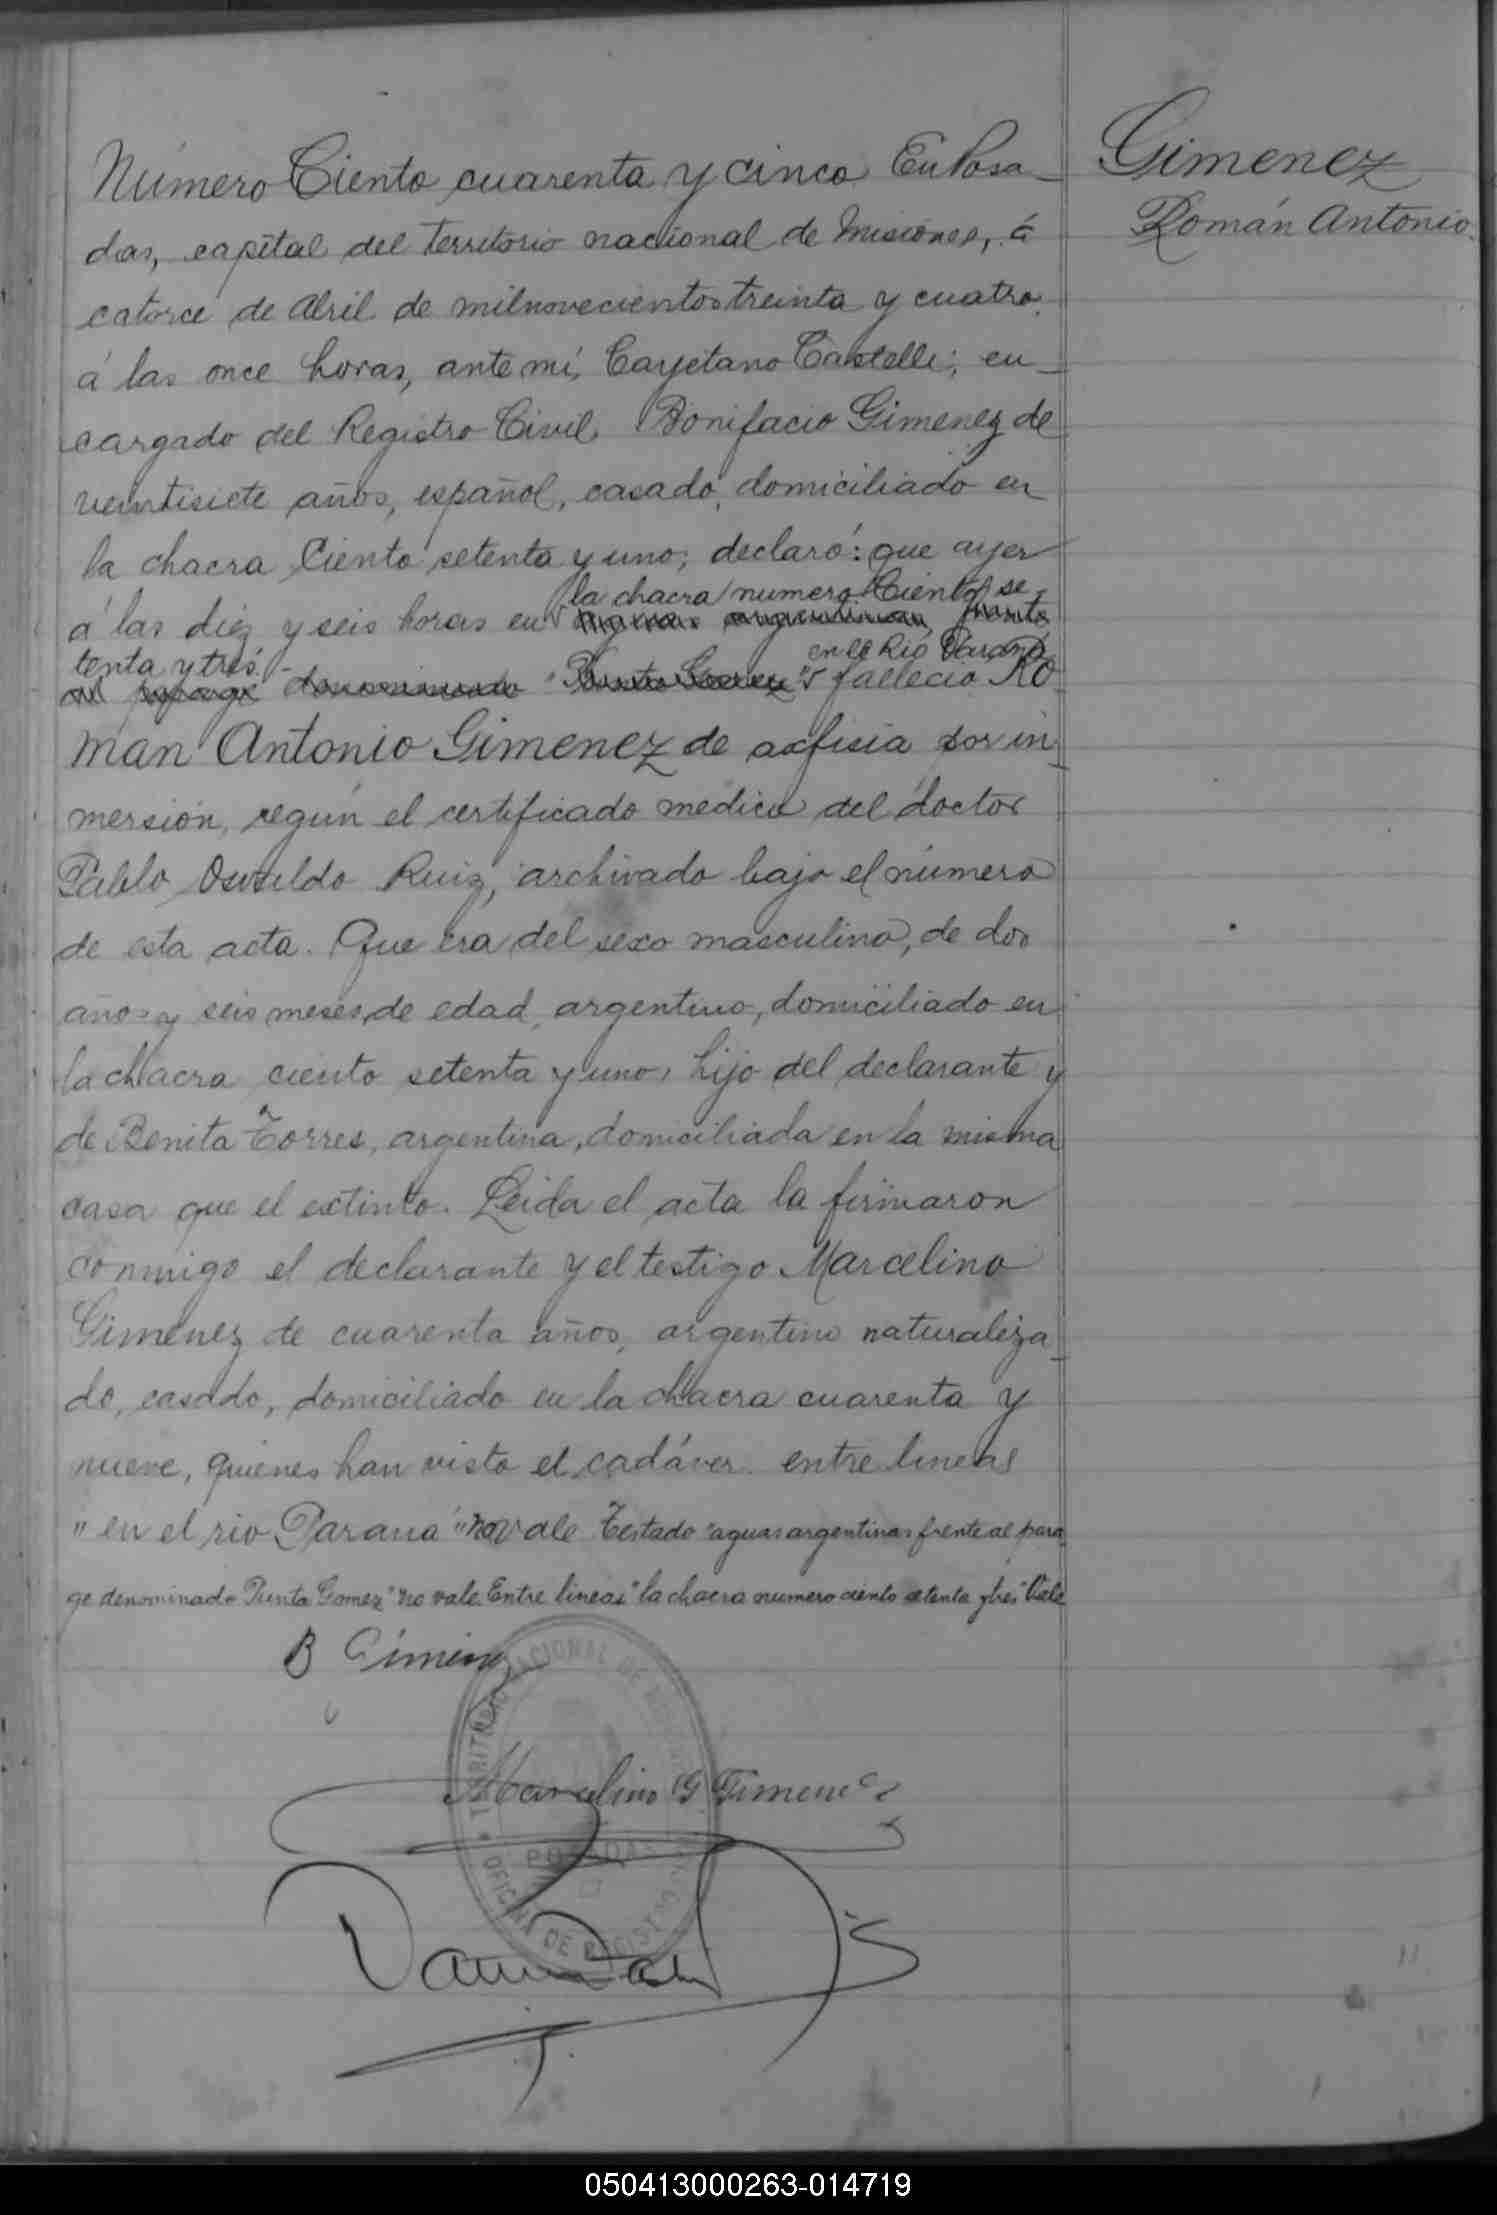 Gimenez
Román Antonio.
Número Ciento cuarenta y cinco En Posa_
das, capital del territorio nacional de Misiones, á
catorce de Abril de milnovecientos treinta y cuatro,
á las once horas, ante mí, Cayetano Castelli; en_
cargado del Registro Civil, Bonifacio Gimenez de
veintisiete años, español, casado, domiciliado en
la chacra Ciento setenta y uno, declaró: que ayer
la chacra numero Ciento se
á las diez y seis horas en aguas argentinas, frente
tenta y tres. en el Rio Paraná
al parage denominado "Punta Gomez" falleció Ro
man Antonio Gimenez de asficia por in_
mersión, según el certificado medico del doctor
Pablo Osvaldo Ruiz, archivado bajo el número
de esta acta. Que era del sexo masculino, de dos
años y seis meses de edad, argentino, domiciliado en
la chacra ciento setenta y uno, hijo del declarante y
de Benita Torres, argentina, domiciliada en la misma
casa que el extinto. Leida el acta la firmaron
conmigo el declarante y el testigo Marcelino
Gimenez de cuarenta años, argentino naturaliza_
do, casado, domiciliado en la chacra cuarenta y
nueve, quienes han visto el cadáver. entre lineas
"en el rio Parana" no vale Testado "aguas argentinas frente al para
ge denominado Punta Gomez" no vale. Entre lineas "la chacra numero ciento setenta y tres" Vale
B Gimenez
Marcelino G Gimenez
TERRITORIO NACIONAL DE MISIONES
POSADAS
OFICINA DE REGISTRO
050413000263-014719